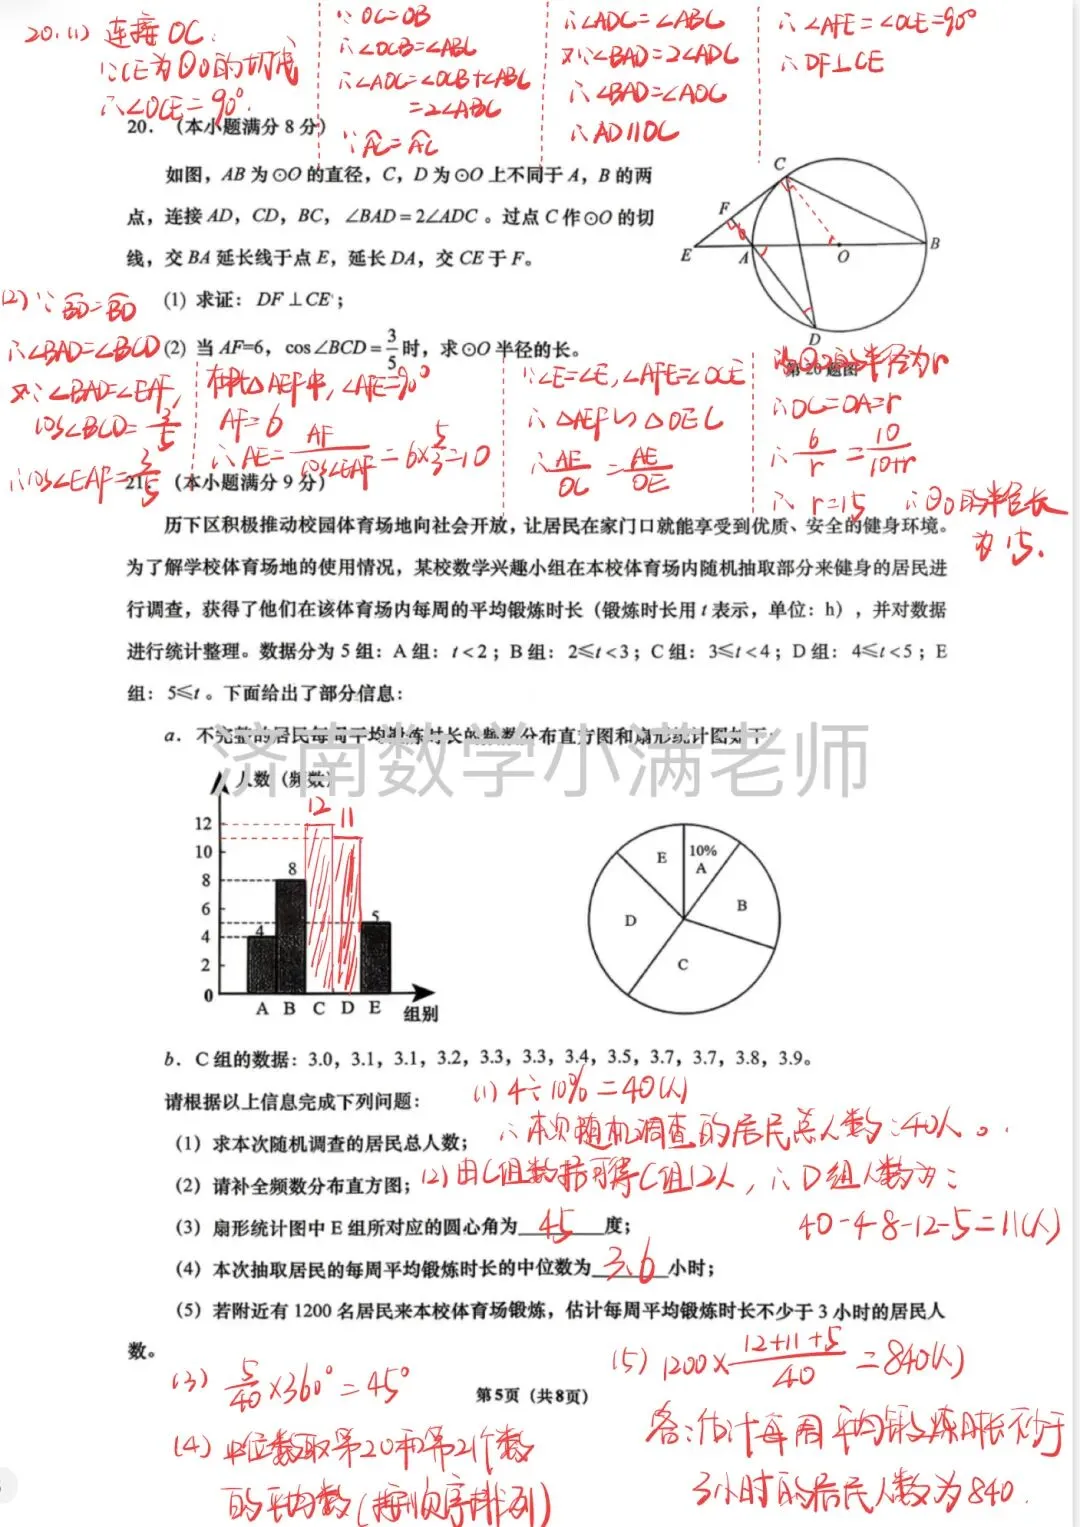 20.(1) 连接OC.
∵CE为⊙O的切线
∴∠OCE=90°.
∵OC=OB
∴∠OCB=∠ABC
∴∠AOC=∠OCB+∠ABC
=2∠ABC
∵AC=AC
∴∠ADC=∠ABC
又∵∠BAD=2∠ADC
∴∠BAD=∠AOC
∴AD∥OC
∴∠AFE=∠OCE=90°
∴DF⊥CE
20. (本小题满分 8 分)
如图，AB 为⊙O 的直径，C，D 为⊙O 上不同于 A，B 的两
点，连接 AD，CD，BC，∠BAD=2∠ADC。过点 C 作⊙O 的切
线，交 BA 延长线于点 E，延长 DA，交 CE 于 F。
(1) 求证：DF⊥CE；
(2) 当 AF=6，cos∠BCD=3/5时，求⊙O 半径的长。
C
F
E
A
O
B
D
第20题图
(2) ∵BD=BD
∴∠BAD=∠BCD
又∵∠BAD=∠EAF,
cos∠BCD=3/5
∴cos∠EAF=3/5
在Rt△AEF中，∠AFE=90°
AF=6
∴AE=AF/cos∠EAF=6×5/3=10
∵∠E=∠E,∠AFE=∠OCE
∴△AEF∽△OEC
∴AF/OC=AE/OE
设⊙O的半径为r
∴OC=OA=r
∴6/r=10/10+r
∴r=15 ∴⊙O的半径长
为15.
21. (本小题满分 9 分)
历下区积极推动校园体育场地向社会开放，让居民在家门口就能享受到优质、安全的健身环境。
为了解学校体育场地的使用情况，某校数学兴趣小组在本校体育场内随机抽取部分来健身的居民进
行调查，获得了他们在该体育场内每周的平均锻炼时长（锻炼时长用 t 表示，单位：h），并对数据
进行统计整理。数据分为 5 组：A 组：t<2；B 组：2≤t<3；C 组：3≤t<4；D 组：4≤t<5；E
组：5≤t。下面给出了部分信息：
a. 不完整的居民每周平均锻炼时长的频数分布直方图和扇形统计图如下：
济南数学小满老师
人数（频数）
12
10
8
6
4
2
0
4
8
12
11
5
A B C D E
组别
E
10%
A
B
C
D
b. C 组的数据：3.0，3.1，3.1，3.2，3.3，3.3，3.4，3.5，3.7，3.7，3.8，3.9。
请根据以上信息完成下列问题：
(1) 4÷10%=40(人)
(1) 求本次随机调查的居民总人数；
∴本次随机调查的居民总人数:40人。
(2) 请补全频数分布直方图；
(2)由C组数据可得C组12人，∴D组人数为:
40-4-8-12-5=11(人)
(3) 扇形统计图中 E 组所对应的圆心角为 45 度；
(4) 本次抽取居民的每周平均锻炼时长的中位数为 3.6 小时；
(5) 若附近有 1200 名居民来本校体育场锻炼，估计每周平均锻炼时长不少于 3 小时的居民人
数。
(3) 5/40×360°=45°
(5) 1200×12+11+5/40=840(人)
第5页（共8页）
(4) 中位数取第20和第21个数
的平均数(按顺序排列)
答:估计每周平均锻炼时长不少于
3小时的居民人数为840.